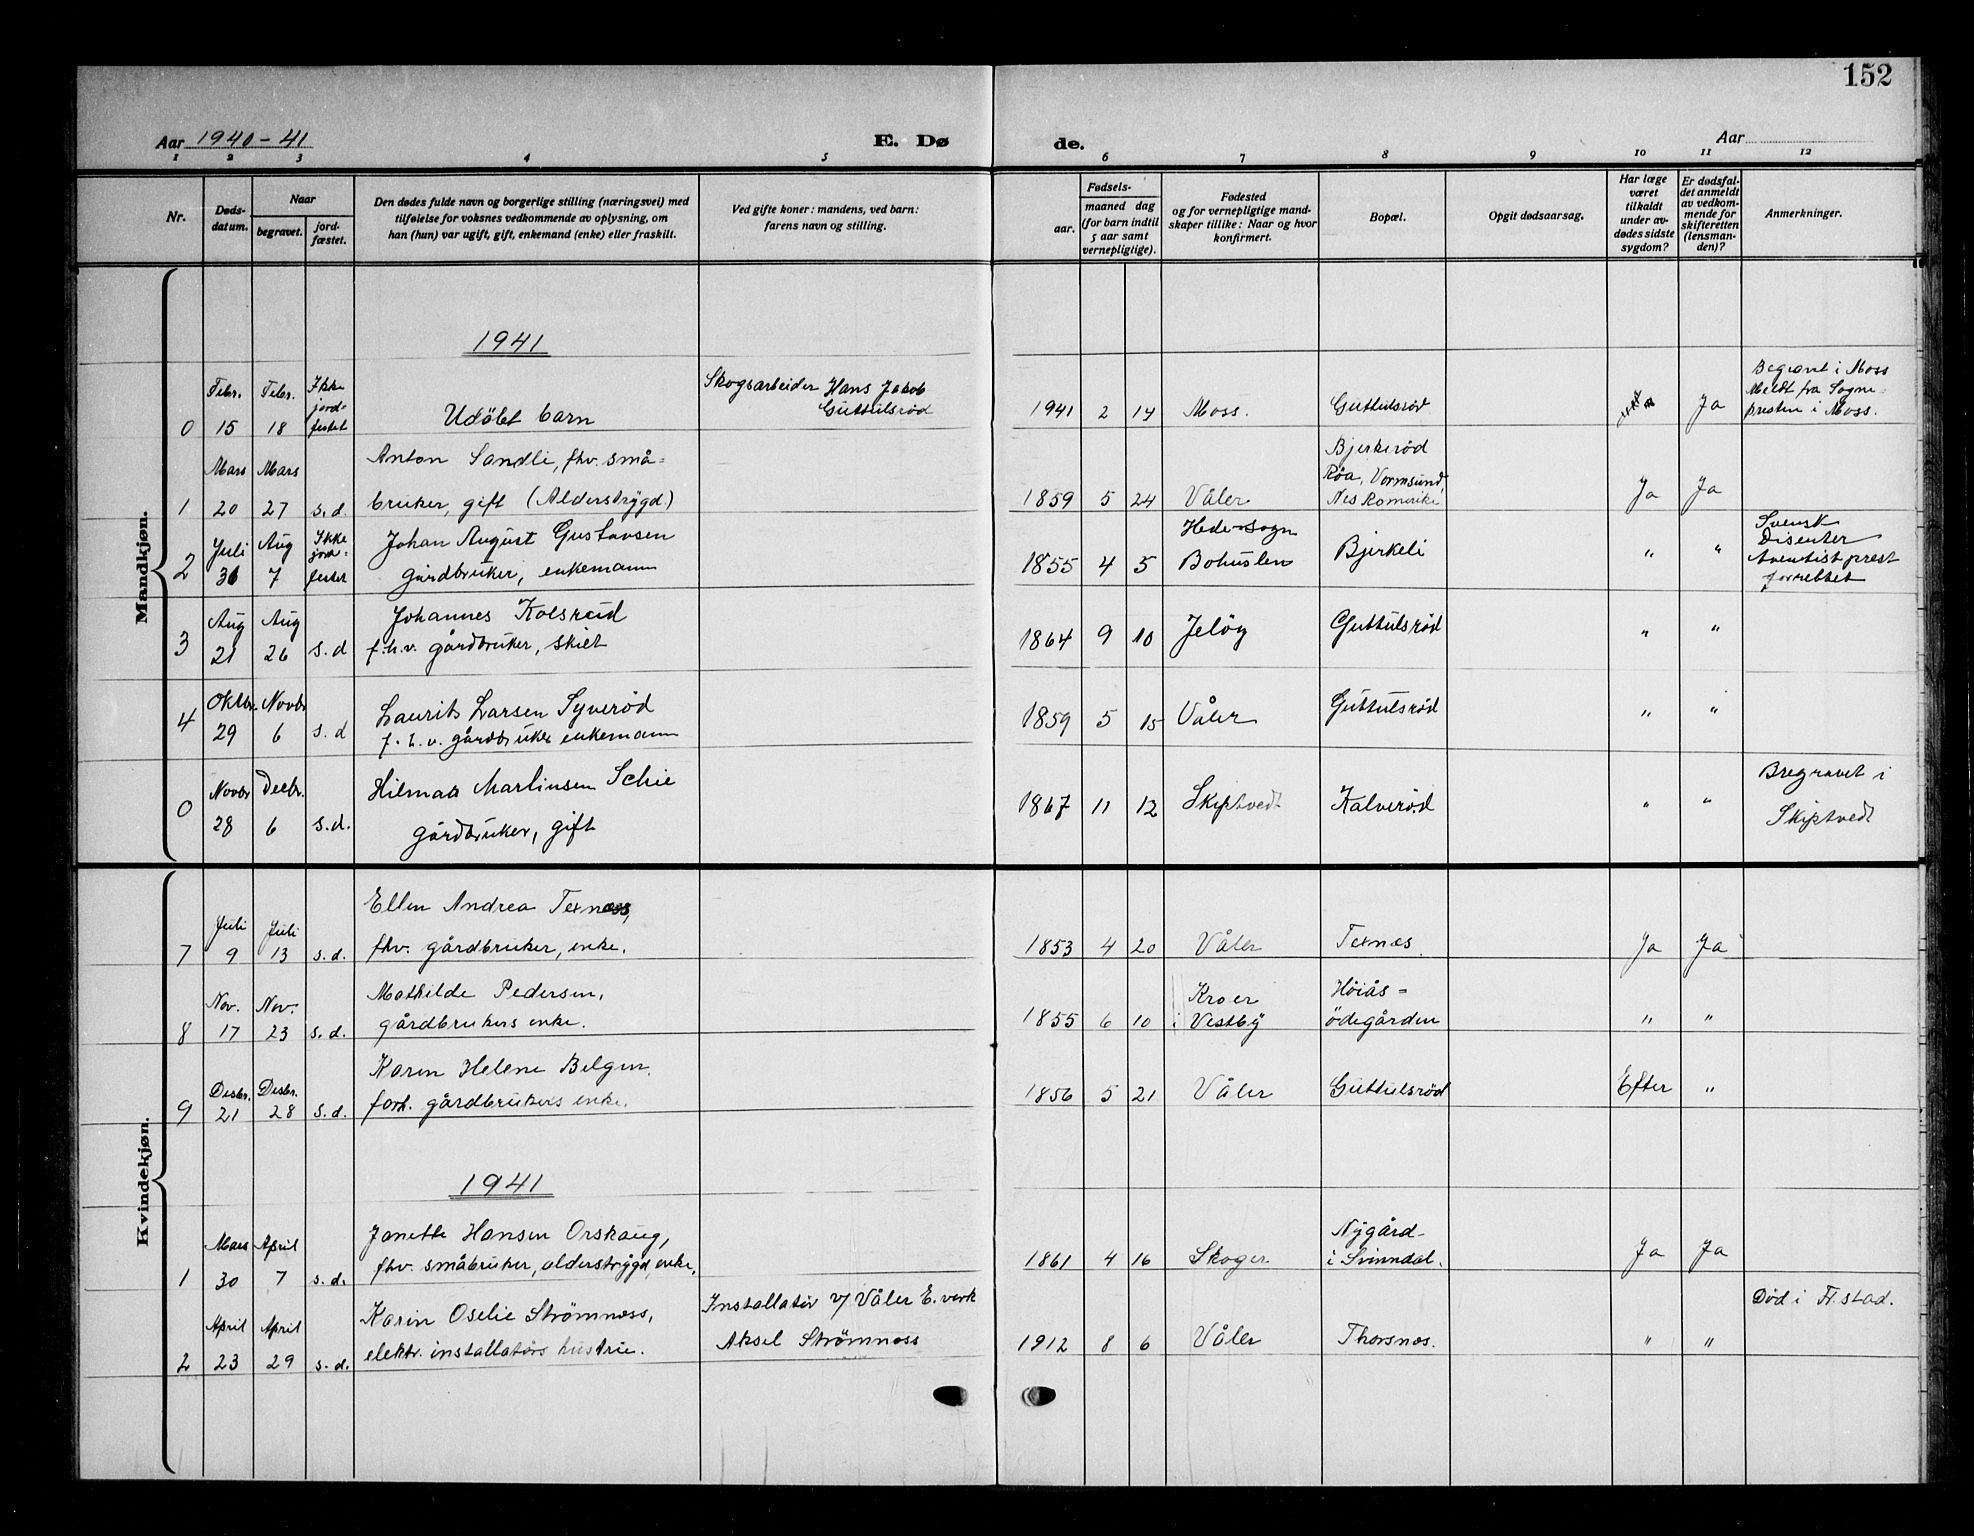 152
Aar 1940-41
E. Dø
de.
Aar
1 2 3 4 5 6 7 8 9 10 11 12
Nr.
Døds-
datum.
Naar
begravet.
jord-
fæstet.
Den dødes fulde navn og borgerlige stilling (næringsvei) med
tilføielse for voksnes vedkommende av oplysning, om
han (hun) var ugift, gift, enkemand (enke) eller fraskilt.
Ved gifte koner: mandens, ved barn:
farens navn og stilling.
Fødsels-
aar.
maaned dag
(for barn indtil
5 aar samt
vernepligtige).
Fødested
og for vernepligtige mand-
skaper tillike: Naar og hvor
konfirmert.
Bopæl.
Opgit dødsaarsag.
Har læge
været
tilkaldt
under av-
dødes sidste
sygdom?
Er dødsfal-
det anmeldt
av vedkom-
mende for
skifteretten
(lensman-
den)?
Anmerkninger.
Mandkjøn.
1941
0
Febr.
15
Febr.
18
Ikke
jord-
festet
Udøbt barn
Skogsarbeider Hans Jakob
Guttulsrød
1941 2 14 Moss. Guttulsrød
Ja
Begravet i Moss
Meldt fra Sogne-
presten i Moss.
1
Mars
20
Mars
27
s.d.
Anton Sandli, fhv. små-
bruker, gift (Alderstrygd)
1859 5 24 Våler
Bjerkerød
Røa, Vormsund,
Nes Romerike
Ja Ja
2
Juli
31
Aug
7
Ikke
jord-
festet
Johan August Gustavsen
gårdbruker, enkemann
1855 4 5
Hede-sogn
Bohuslen
Bjerkeli
" "
Svensk
Disenter
Aventist prest
forrettet
3
Aug
21
Aug
26
s.d
Johannes Kolsrud
f.h.v. gårdbruker, skilt
1864 9 10 Jeløy Guttulsrød " "
4
Oktbr.
29
Novbr
6
s.d
Laurits Larsen Syverød
f.h.v. gårdbruker enkemann
1859 5 15 Våler Guttulsrød " "
0
Novbr
28
Decbr.
6
s.d.
Hilmar Martinsen Schie
gårdbruker, gift
1867 11 12 Skiptvedt Kalverød " "
Bregravet i
Skiptvedt
Kvindekjøn.
7
Juli
9
Juli
13
s.d.
Ellen Andrea Texnæss,
fhv. gårdbruker, enke.
1853 4 20 Våler Texnæs. Ja Ja
8
Nov.
17
Nov.
23
s.d.
Mathilde Pedersen,
gårdbrukers enke.
1855 6 10
Kroer
i Vestby
Høiås-
ødegården
" "
9
Desbr.
21
Desbr.
28
s.d.
Karen Helene Belgen,
forh. gårdbrukers enke.
1856 5 21 Våler Guttulsrød Efter "
1941
1
Mars
30
April
7
s.d.
Janette Hansen Orskaug,
fhv. småbruker, alderstrygd, enke,
1861 4 16 Skoger
Nygård
i Svinndal.
Ja Ja
2
April
23
April
29
s.d.
Karin Oselie Strømnæss,
elektr. installatørs hustrie.
Installatør v/ Våler E.verk
Aksel Strømnæss
1912 8 6 Våler Thorsnæs. " "
Død i Fr.stad.